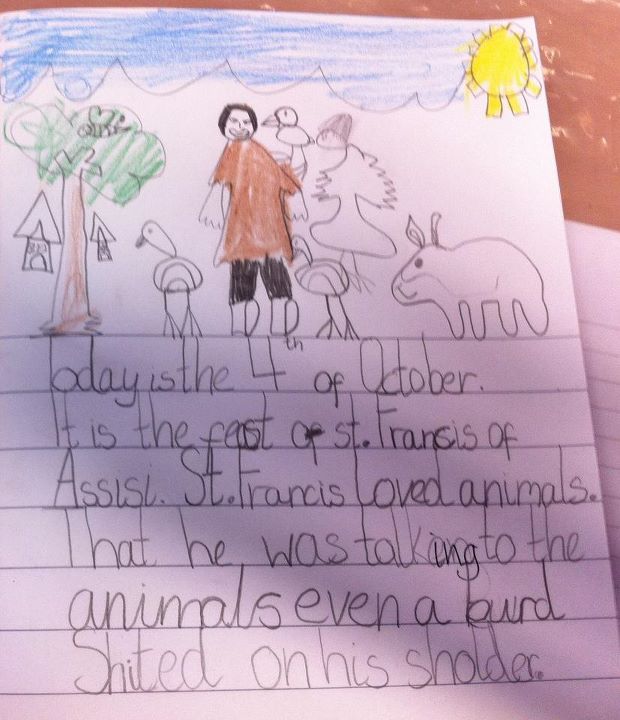 Today is the 4th of October.
It is the feast of st. Francis of
Assisi. St. Francis Loved animals.
That he was talking to the
animals even a burd
Shited on his sholder.